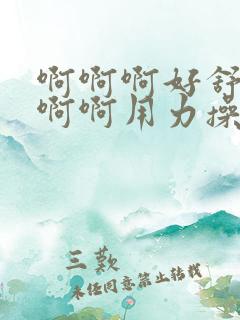 啊啊啊好舒
啊啊用力操
三歎
未经同意禁止转载